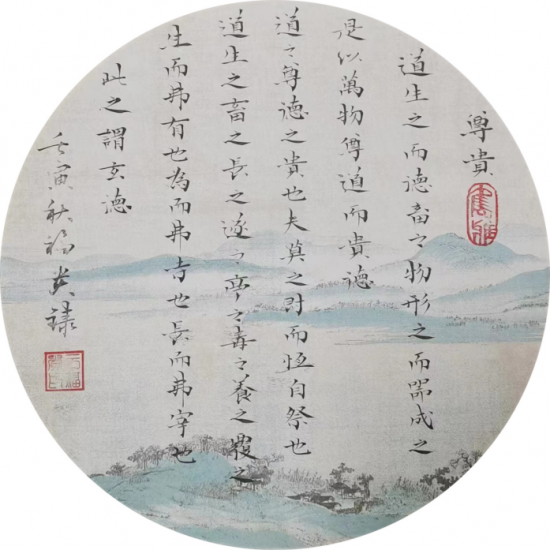 尊貴
道生之而德畜之物形之而器成之
是以萬物尊道而貴德
道之尊德之貴也夫莫之尉而恆自祭也
道生之畜之長之遂之亭之毒之養之覆之
生而弗有也為而弗寺也長而弗宰也
此之謂玄德
壬寅秋福貴錄